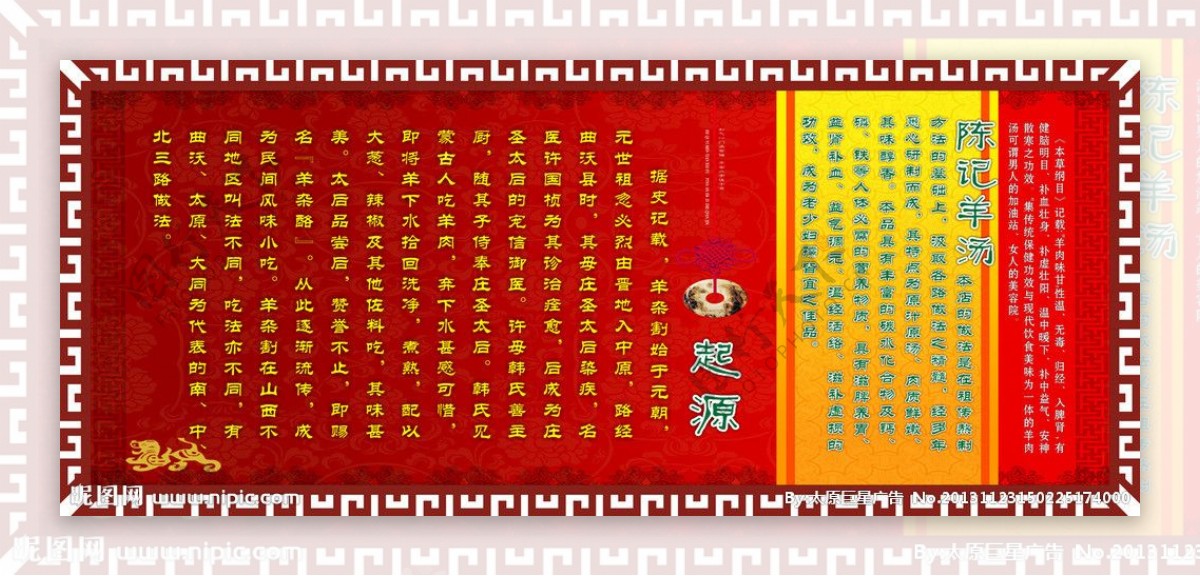 《本草纲目》记载，羊肉味甘性温、无毒、归经、入脾肾，有
健脑明目、补血壮身、补虚壮阳、温中暖下、补中益气、安神
散寒之功效。集传统保健功效与现代饮食美味为一体的羊肉
汤可谓男人的加油站，女人的美容院。
陈记羊汤
本店的做法是在祖传熬制
方法的基础上，汲取各路做法之精髓，经多年
悉心研制而成，其特点为原汁原汤，肉质鲜嫩，
其味醇香。本品具有丰富的碳水化合物及钙、
磷、铁等人体必需的营养物质，具有滋脾养胃、
益肾补血、益气调元、温经活络、滋补虚损的
功效，成为老少妇孺皆宜之佳品。
起源
据史记载，羊杂割始于元朝，
元世祖忽必烈由晋地入中原，路经
曲沃县时，其母庄圣太后染疾，名
医许国祯为其诊治痊愈，后成为庄
圣太后的宠信御医。许母韩氏善主
厨，随其子侍奉庄圣太后。韩氏见
蒙古人吃羊肉，弃下水甚感可惜，
即将羊下水拾回洗净，煮熟，配以
大葱、辣椒及其他佐料吃，其味甚
美。太后品尝后，赞誉不止，即赐
名『羊杂酪』。从此逐渐流传，成
为民间风味小吃。羊杂割在山西不
同地区叫法不同，吃法亦不同，有
曲沃、太原、大同为代表的南、中
北三路做法。
昵图网 www.nipic.com
By:太原巨星广告 No.20131123150225174000
陈记羊汤
昵图网 www.nipic.com
By:太原巨星广告 No.2013112